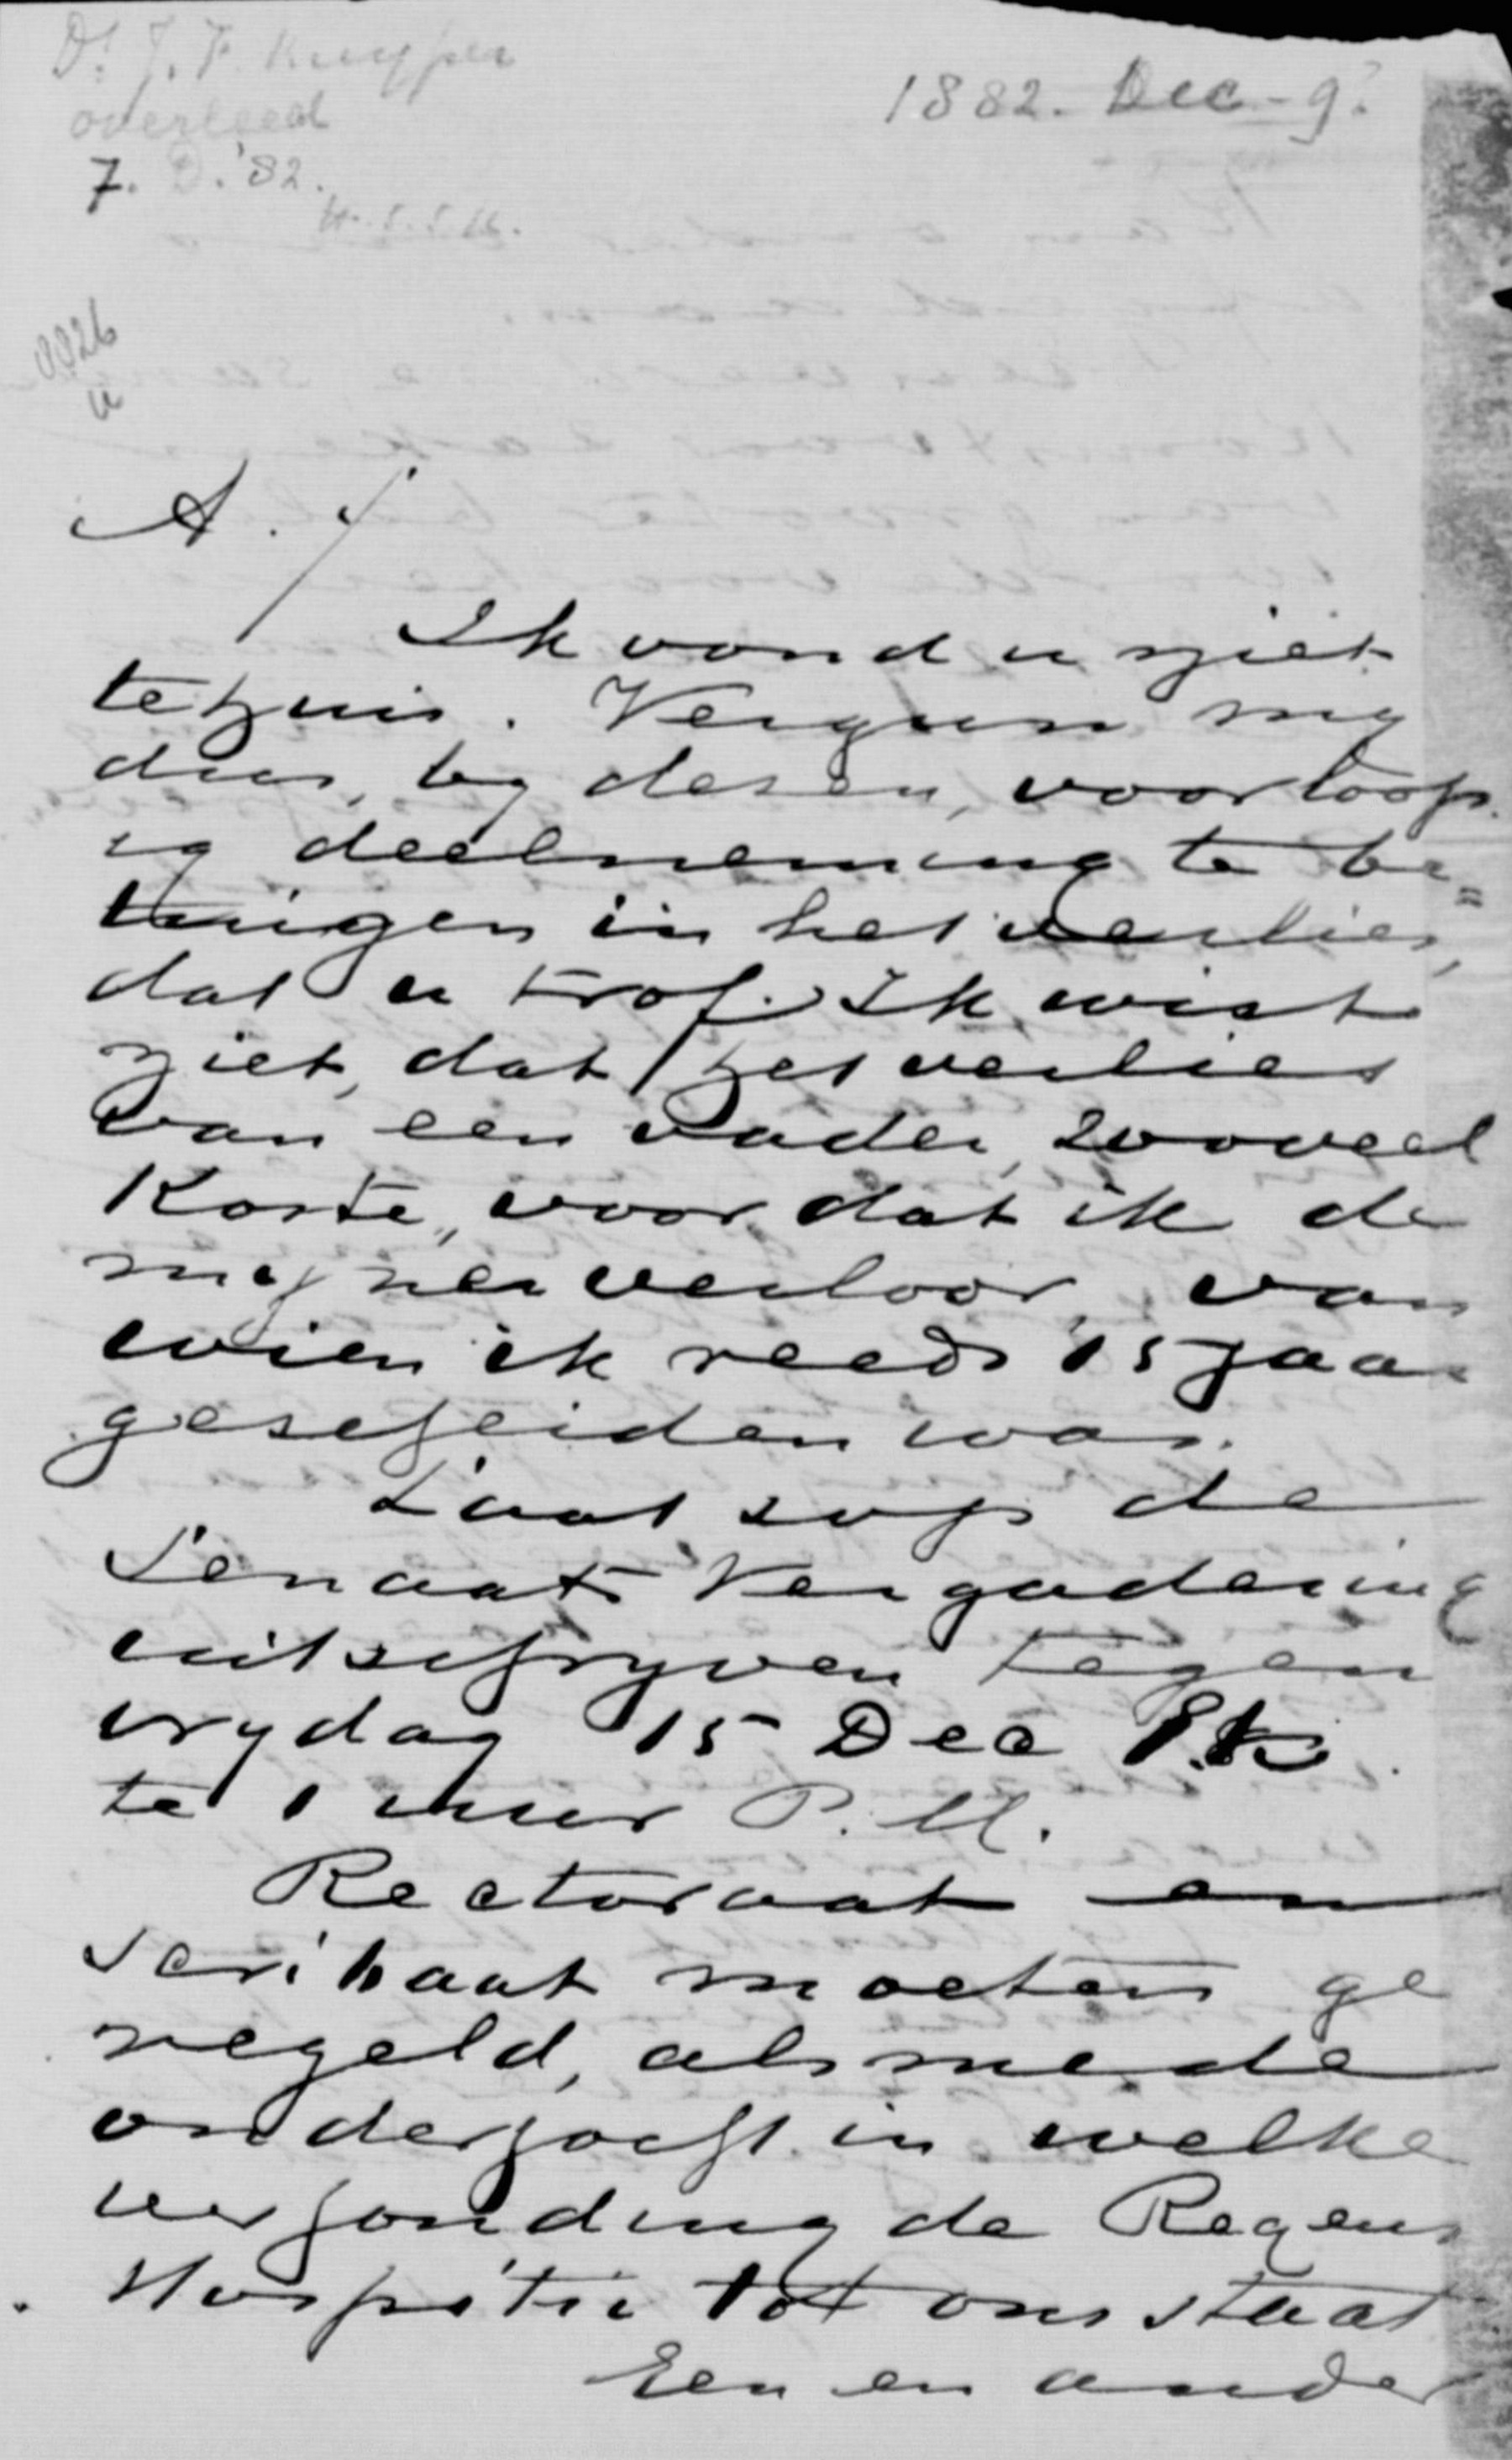 Ds J. F. Kuyper
overleed
7. D. '82.
1882. Dec - 9?
0026
A. f
Ik vond u niet
te huis. Vergun my
dus, by dezen, voorloop
ig deelneming te be=
tuigen in het verlies,
dat u trof. Ik wist
niet, dat het verlies
van een vader, zooveel
koste, voor dat ik de
mijnen verloor, van
wien ik reeds 15 jaar
gescheiden was.
Laat s.v.p. de
Senaats Vergadering
uitschryven tegen
vrydag 15 Dec ek.
te 1 uur P.M.
Rectoraat en
scribaat moeten ge
regeld, alsmede
onderzocht in welke
verhouding de Regens
Hospitii tot ons staat
Een en ander